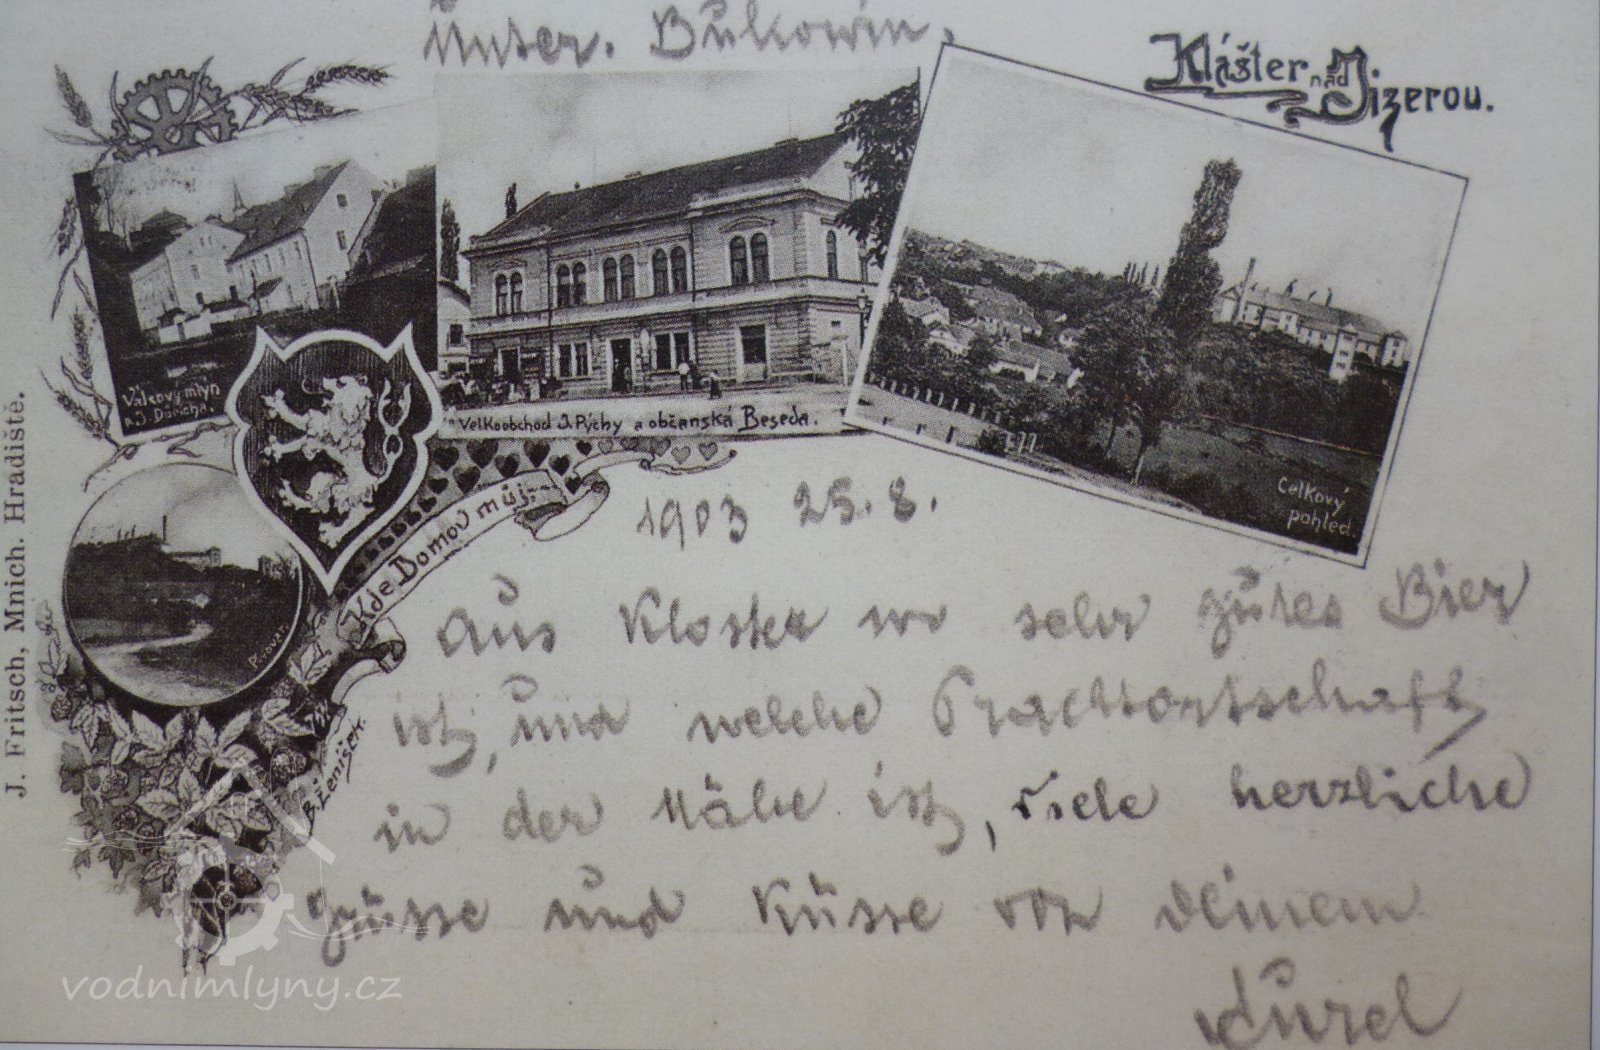 Unter. Bukowin.
Klášter nad Jizerou.
Válcový mlýn
p. J. Dőricha.
Velkoobchod J. Rýchy a občanská Beseda.
Celkový
pohled.
Kde Domov můj:
Pivovar.
B. Leništh.
J. Fritsch, Mnich. Hradiště.
1903 25. 8.
Aus Kloster wo sehr gutes Bier
ist, und welche Prachtortschaft
in der Nähe ist, viele herzliche
Grüsse und Küsse von deinem
vodnimlyny.cz